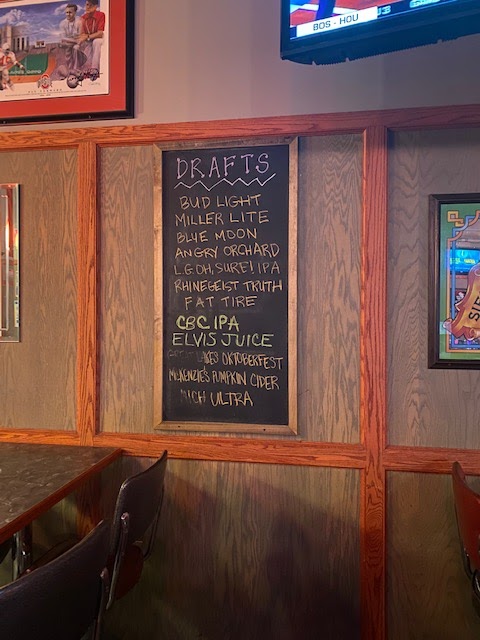 BOS - HOU
DRAFTS
BUD LIGHT
MILLER LITE
BLUE MOON
ANGRY ORCHARD
L.G. OH, SURE! IPA
RHINEGEIST TRUTH
FAT TIRE
CBC IPA
ELVIS JUICE
GREAT LAKES OKTOBERFEST
MCKENZIE'S PUMPKIN CIDER
MICH ULTRA